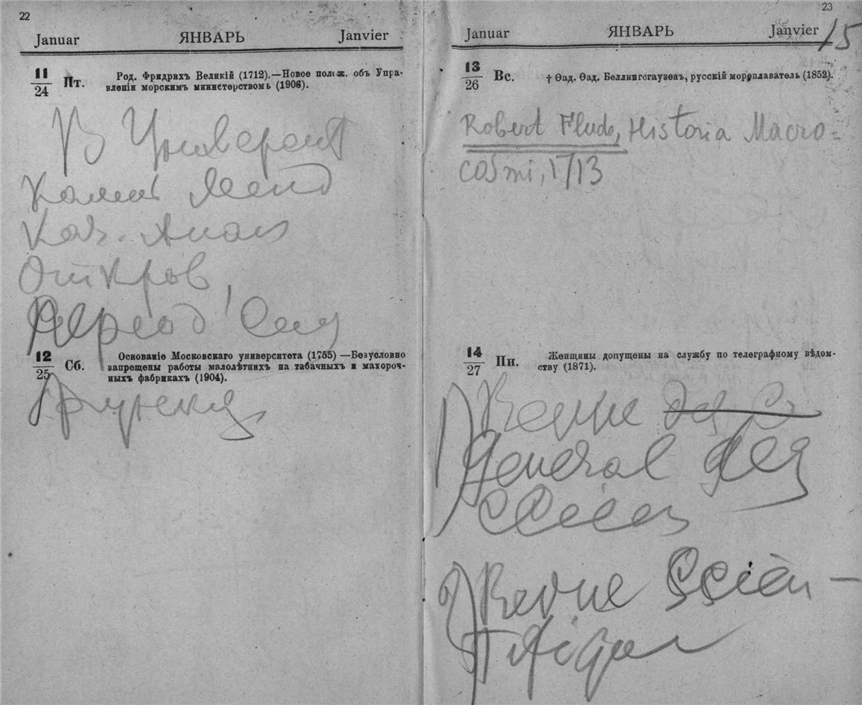 22
Januar ЯНВАРЬ Janvier
11/24 Пт. Род. Фридрихъ Великій (1712).—Новое полож. объ Упра-
вленіи морскимъ министерствомъ (1906).
В Университ
Кат. Анал
Откров,
Период
12/25 Сб. Основаніе Московскаго университета (1755) —Безусловно
запрещены работы малолѣтнихъ на табачныхъ и махороч-
ныхъ фабрикахъ (1904).
23
Januar ЯНВАРЬ Janvier 15
13/26 Вс. † Ѳад. Ѳад. Беллинсгаузенъ, русскій мореплаватель (1852).
Robert Fludd, Historia Macro-
cosmi, 1713
14/27 Пн. Женщины допущены на службу по телеграфному вѣдом-
ству (1871).
1) Revue
General des
Scien
2) Revue Scien-
tifique